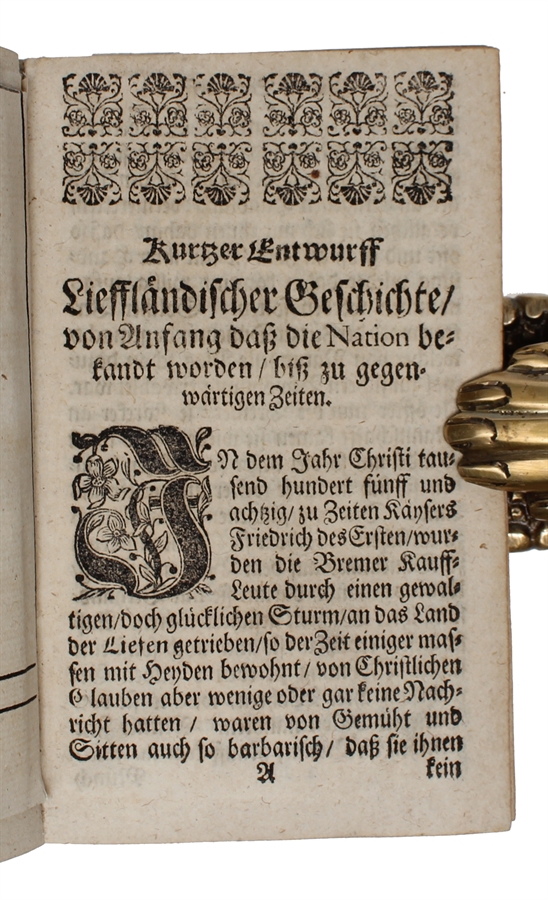 Kurtzer Entwurff
Liefflåndischer Geschichte/
von Anfang daß die Nation be-
kandt worden / biß zu gegen-
wårtigen Zeiten.
IN dem Jahr Christi tau-
send hundert fünff und
achtzig/ zu Zeiten Kåysers
Friedrich des Ersten/wur-
den die Bremer Kauff-
Leute durch einen gewal-
tigen/doch glücklichen Sturm/an das Land
der Liefen getrieben/so der Zeit einiger mas-
sen mit Heyden bewohnt / von Christlichen
Glauben aber wenige oder gar keine Nach-
richt hatten / waren von Gemüht und
Sitten auch so barbarisch/ daß sie ihnen
A kein